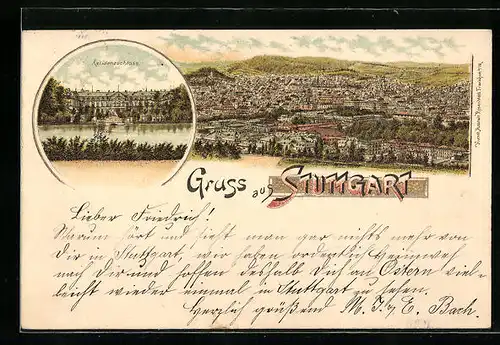 Residenzschloss
Gruss aus STUTTGART
Lieber Friedrich!
Warum hört und sieht man gar nichts mehr von
Dir in Stuttgart, wir haben ordentlich Heimweh
nach Dir und hoffen deshalb Dich an Ostern viel-
leicht wieder einmal in Stuttgart zu sehen.
Herzlich grüßend M. E. Bach.